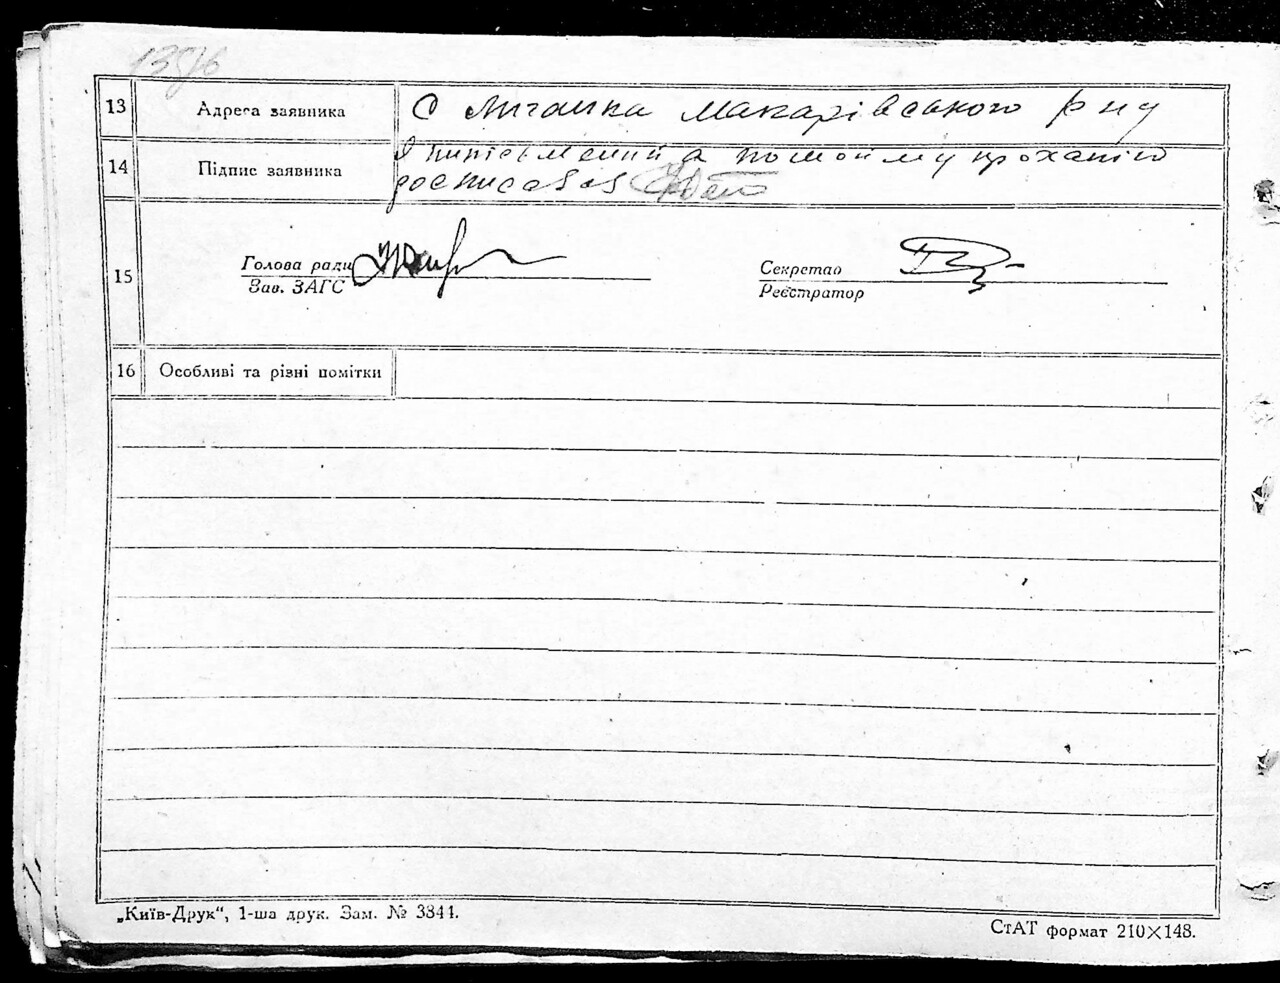 1376
13 Адреса заявника С Личанка Макарівського р ну
14 Підпис заявника а по моойму проханію
росписався
15 Голова ради Секретар
Зав. ЗАГС Реєстратор
16 Особливі та різні помітки
„Київ-Друк“, 1-ша друк. Зам. № 3841.
СтАТ формат 210×148.